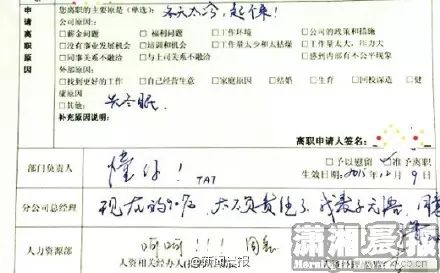 您离职的主要原是(单选): 冬天太冷，起不来！
申请离职原因
公司原因:
□薪金问题 □福利问题 □工作环境 □公司的政策和措施
□没有事业发展机会 □培训和机会 □工作量太少和太枯燥 □工作量太大，压力大
□同事关系不融洽 □与上司关系不融洽 □感到内部有不公平现象
外部原因:
□找到更好的工作 □自己经营生意 □家庭原因 □结婚 □生育 □回校深造 □健
康原因
□其他:
补充原因说明:
离职申请人签名:
部门负责人
懂你！
TAT
□予以慰留 □准予离职
生效日期: 2015年12月9日
分公司总经理
现在的90后，太不负责任了，我表示无语，同意
人力资源部
呵呵！！！同意
人资相关经办人
@新闻晨报
潇湘晨报